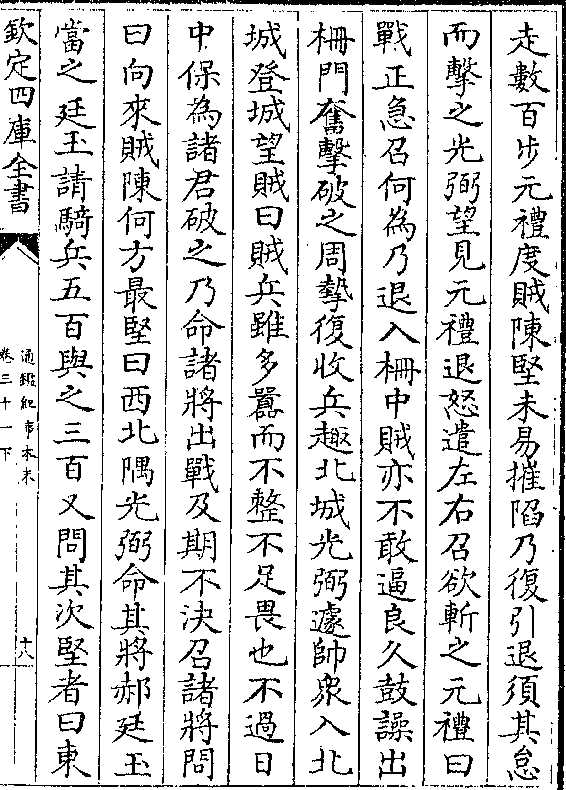 走數百步元禮度賊陳堅未易摧陷乃復引退須其怠
而擊之光弼望見元禮退怒遣左右召欲斬之元禮曰
戰正急召何為乃退入柵中賊亦不敢逼良久鼓譟出
柵門奮擊破之周摯復收兵趣北城光弼遽帥衆入北
城登城望賊曰賊兵雖多囂而不整不足畏也不過日
中保為諸君破之乃命諸將出戰及期不決召諸將問
曰向來賊陳何方最堅曰西北隅光弼命其將郝廷玉
當之廷玉請騎兵五百與之三百又問其次堅者曰東
欽定四庫全書
通鑑紀事本末
卷三十一下
十八